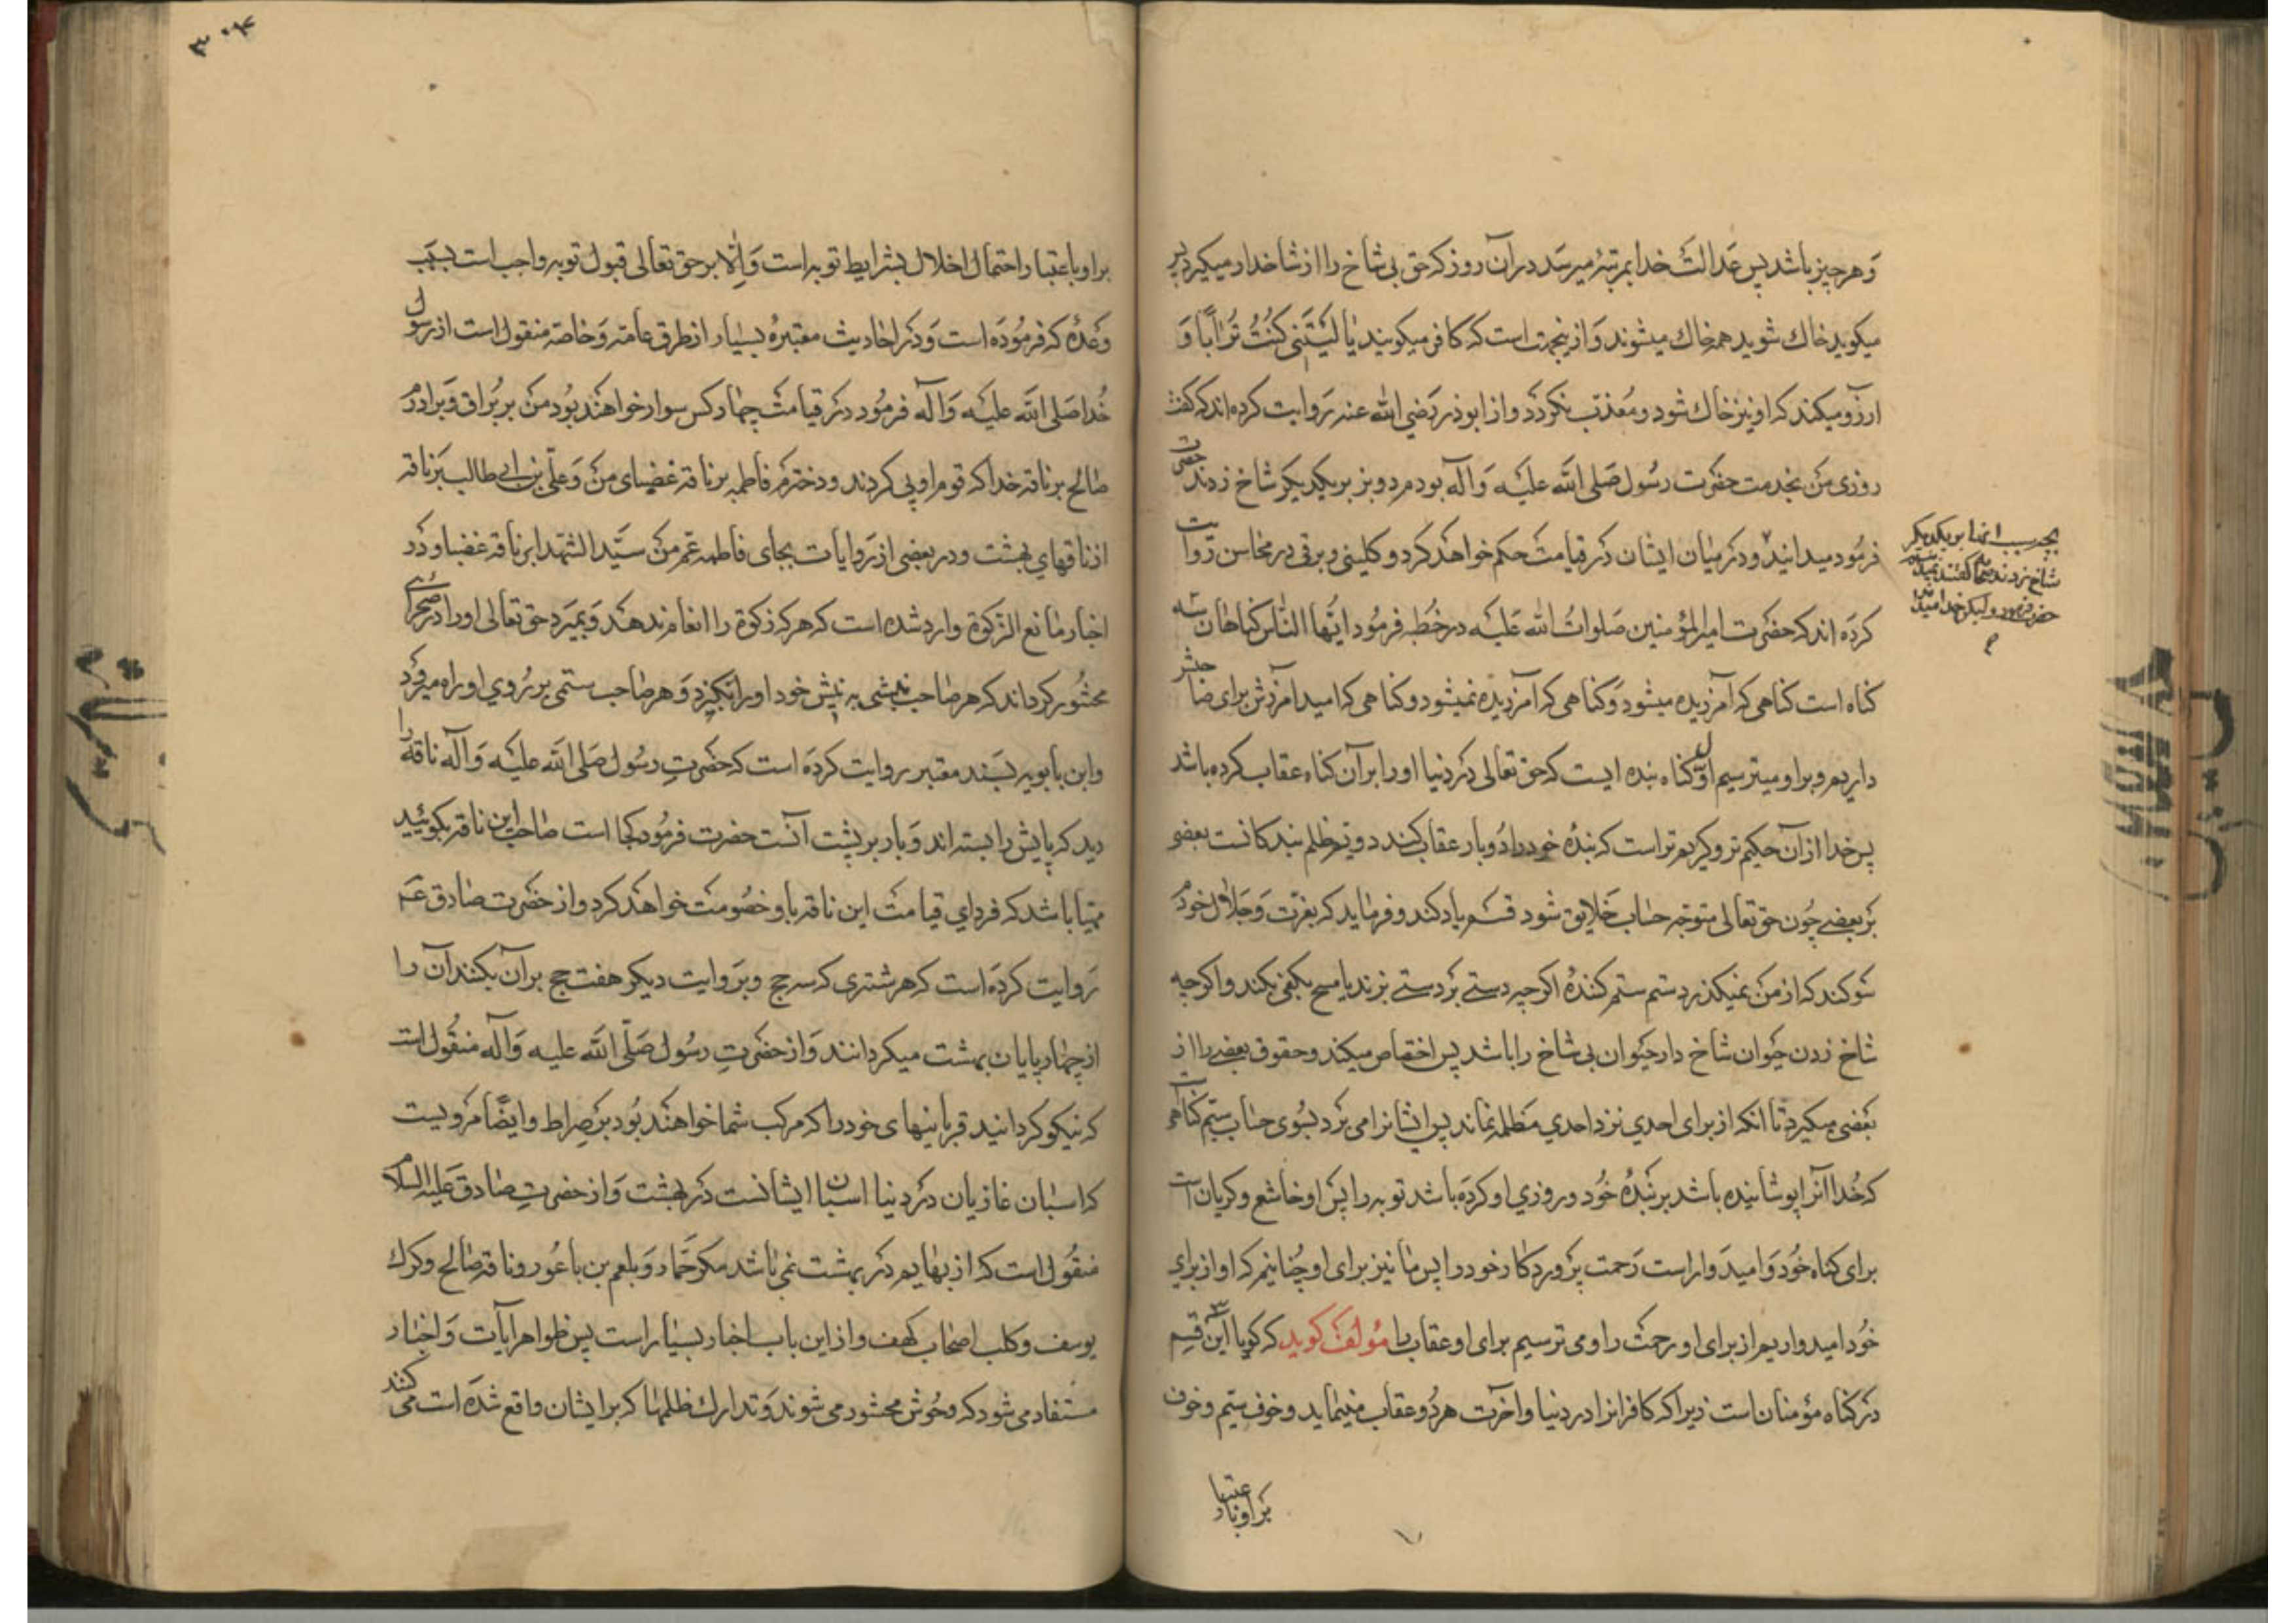 وَهر چیز باشد پس عَدالت خدا بمرتبۀ میرسَد در آن روز که حق بی شاخ را از شاخدار میگیرد پس
میکوید خاك شوید همه خاك میشوند وَاز ینجهت است که کافر میکویند یٰا لَیْتَنی کُنْتُ تُرٰاباً وَ
آرزو میکند که او نیز خاك شود و مُعذب نکردَد و از ابوذر رَضی الله عنه رَوایت کرده اند که گفت
روزی من بخدمت حضرت رسُول صَلی الله علیه وَ آله بودم دو بز بر یکدیکر شاخ زدند حضرت
فرمُود میدانید و دَر میٰان ایشان دَر قیامت حکم خواهد کرد و کلینی و برقی در محاسن رَوایت
کردَه اند که حضرت امیرالمؤمنین صَلواتُ الله عَلیه در خُطبه فرمُود ایّها النّاس کناهان سه
کناه است کناهی که آمرزیده میشود وَ کناهی که آمرزیده نمیشود و کناهی که امید آمرزش برای صاحبش
داریم و بر او میترسیم اوّل کناه بنده ایست که حق تعالی دَر دنیا او را بر آن کناه عقاب کرده باشد
پس خدا از آن حکیم تر و کریم تر است که بندۀ خود را دُو بار عقاب کند دویّم ظلم بندکانست بعضی
بَر بعضے چُون حق تعالی متوجّه حساب خَلایق شود قسم یاد کند و فرماید که بعزّت وَ جَلال خودم
سَوکند که از من نمیکذرد ستم ستم کنندۀ اکر چه دستے بَر دستے بزند یا مسح بکفی بکند و اکر چه
شاخ زدن حَیوان شاخ دار حَیوان بی شاخ را باشد پس اختصاص میکند و حقوق بعضے را از
بَعضی میکیرد تا انکه از برای احدی نزد احدی مَظلمه نماند پس ایشانرا می بَرد بسُوی حساب سیّم کناهی است
که خُدا آنرا پوشانیده باشد بر بَندۀ خُود و روزی او کردَه باشد توبه را پس او خاشع و کریان است
برای کناه خُود وَ امیدوار است رَحمت پرَورد کار خود را پس ما نیز برای او چُنانیم که او از برای
خُود امیدواریم از برای او رحمت را و می ترسیم برای او عقاب را مؤلف کوید که کویا این قسم ۳
دَر کناه مؤمنان است زیرا که کافرانرا در دنیا و آخرت هر دُو عقاب مینماید و خوف سیّم و خوف
بر او باعتبار
بچه سبب اینها بر یکدیکر
شاخ زدند صحابه کفتند نمیدانیم
حضرت فرمود و لیکن خدا میداند
۳۰۴
بر او باعتبار احتمال اخلال بشرایط توبه است وَ اِلّا بر حق تعالی قبول توبه واجب است بسَبب
وَعدۀ که فرمُودَه است وَ دَر احادیث معتبرۀ بسیار از طرق عامّه وَ خاصّه منقول است از رسول
خُدا صَلی الله علیه وَ آله فرمُود دَر قیامت چهار کس سوار خواهند بُود من بر بُراق وَ برادرم
صالح بر ناقۀ خدا که قوم او پی کردند و دخترم فاطمه بر ناقۀ غضبای من وَ علیّ بن ابی طالب بَر ناقۀ
از ناقهای بهشت و در بعضی از رَوایات بجای فاطمه عمّ من سیّد الشهدا بر ناقۀ غضبا و دَر
اخبار مانع الزکوة وارد شده است که هر که زکوة را انعام ندهد وَ بمیرد حق تعالی او را در صحرائے
محشُور کرداند که هر صاحب نیشی به نیش خود او را بگزد وَ هر صاحب سمّی بر رُوی او راه میرود
و ابن بابویه بسَند معتبر روایت کردَه است که حضرتِ رسُول صَلی الله علیه وَ آله ناقۀ را
دید که پایش را بسته اند وَ بار بر پشت آنست حضرت فرمُود کجا است صاحب این ناقه بکوئید
مهیّا باشد که فردای قیامت این ناقه با او خصُومت خواهد کرد و از حضرت صادق عم
رَوایت کردَه است که هر شتری که سه حج و برَوایت دیکر هفت حج بر آن بکنند آن را
از چهار پایان بهشت میکردانند وَ از حضرتِ رسُول صَلّی الله علیه وَ آله منقُول است
که نیکو کردانید قربانیهای خود را که مرکب شما خواهند بُود بَر صِراط و ایضاً مرویست
که اسبان غازیان دَر دنیا اسبان ایشانست دَر بهشت وَ از حضرتِ صادق عَلیه السلام
منقُول است که از بهایم دَر بهشت نمی باشد مکر حمار وَ بلعم بن باعُور و ناقۀ صالح و کرك
یوسف و کلب اصحاب کهف و از این باب اخبار بسیار است پس ظواهر آیات وَ اخبار
مستفاد می شود که وحُوش محشور می شوند وَ تدارك ظلمها که بر ایشان واقع شدَه است می کنند